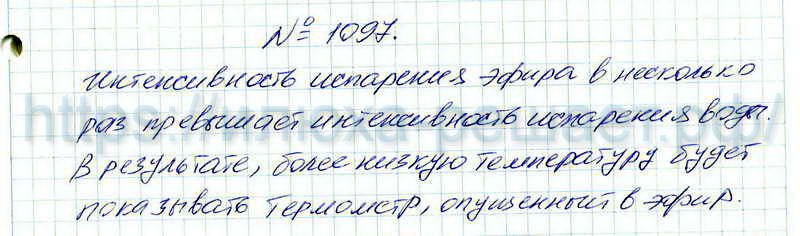 № 1097.
Интенсивность испарения эфира в несколько
раз превышает интенсивность испарения воды.
В результате, более низкую температуру будет
показывать термометр, опущенный в эфир.